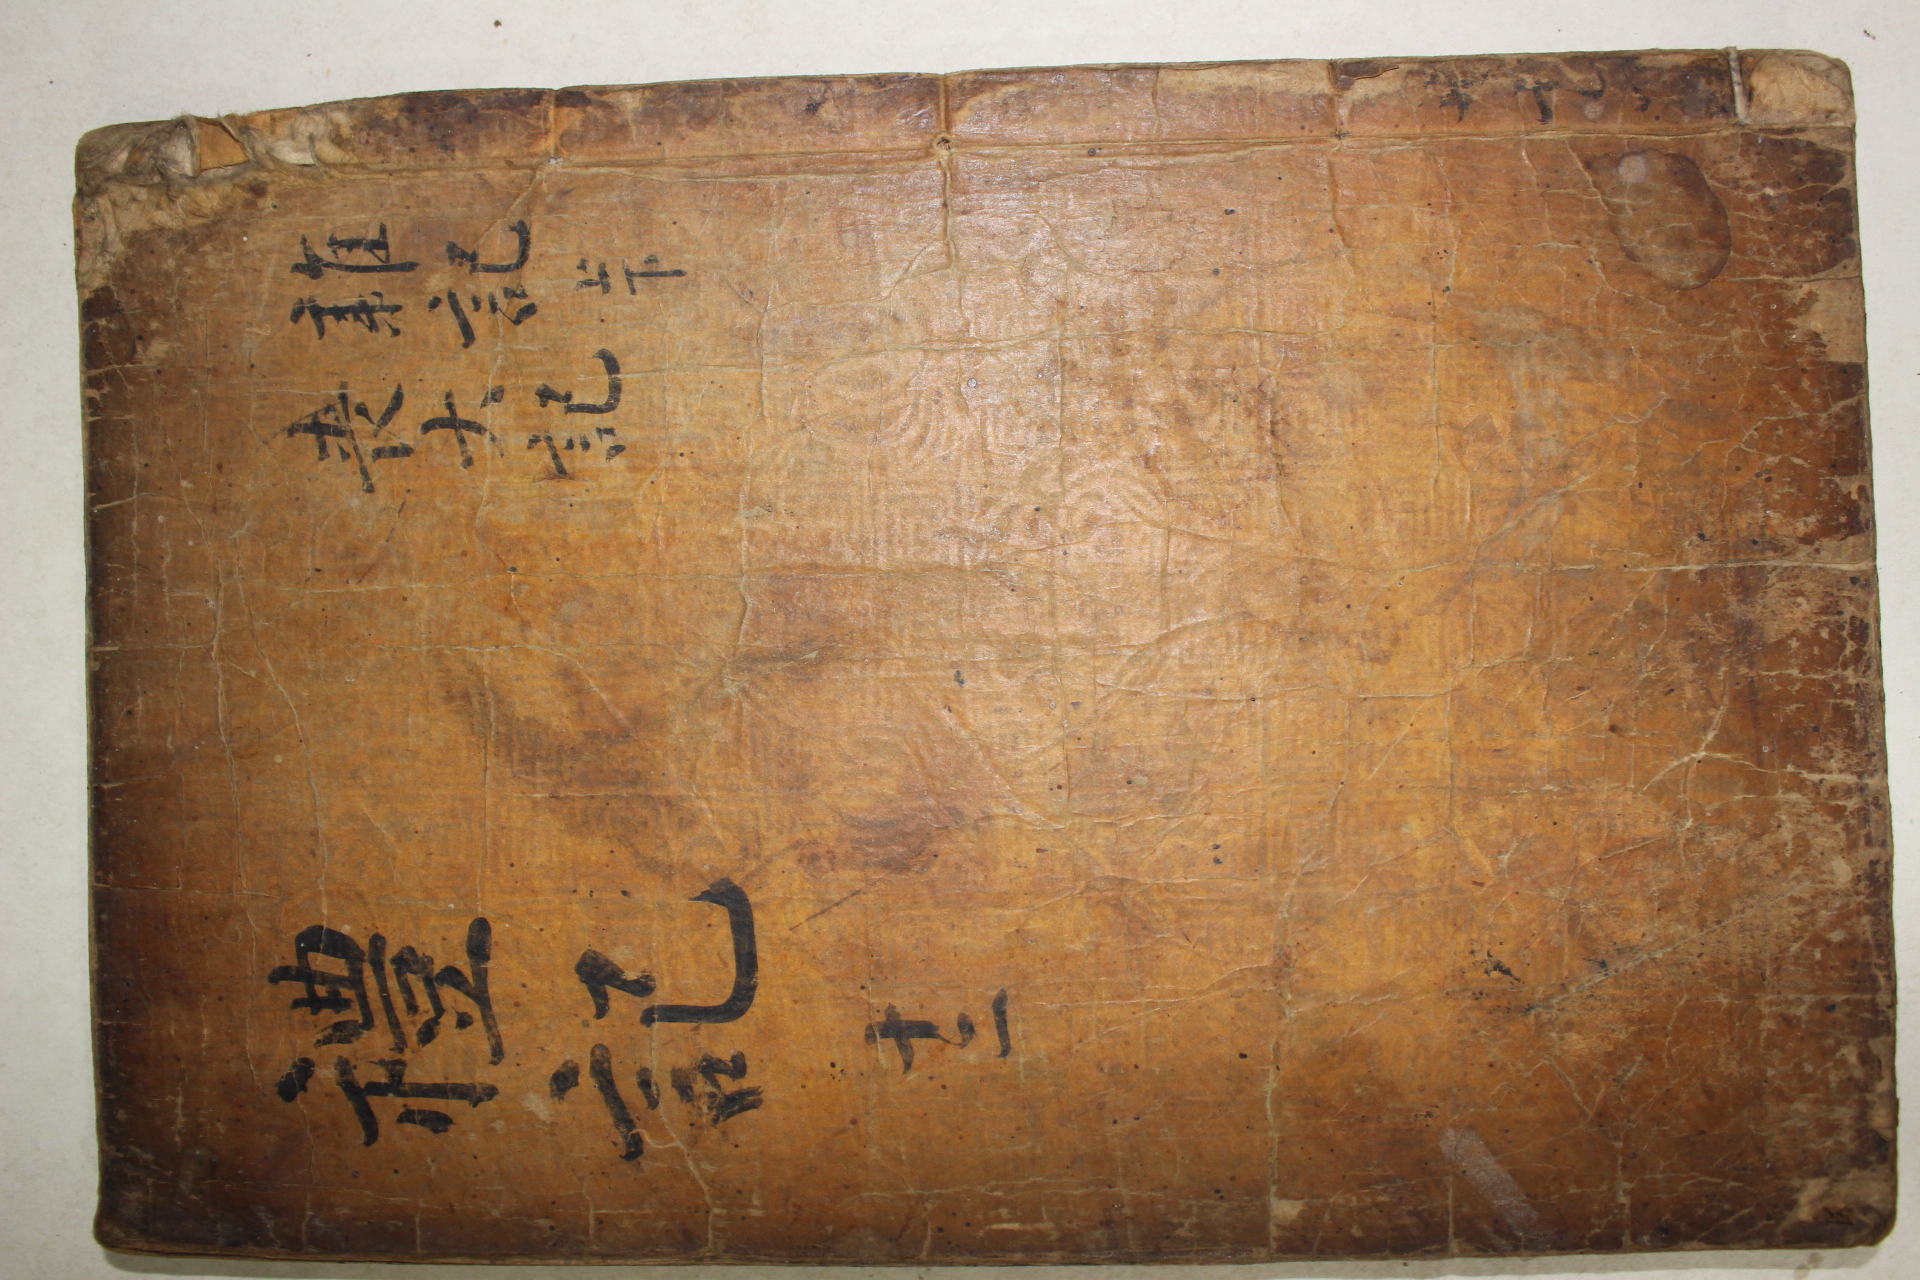 雜記上下
喪大記
禮記 十二